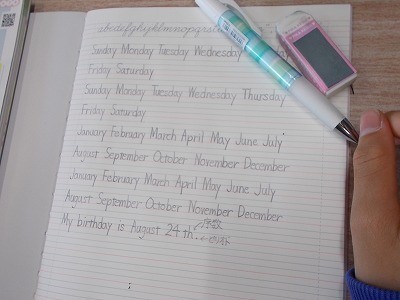 abcdefghijklmnopqrs
Sunday Monday Tuesday Wednesday
Friday Saturday
Sunday Monday Tuesday Wednesday Thursday
Friday Saturday
January February March April May June July
August September October November December
January February March April May June July
August September October November December
My birthday is August 24 th. ←序数